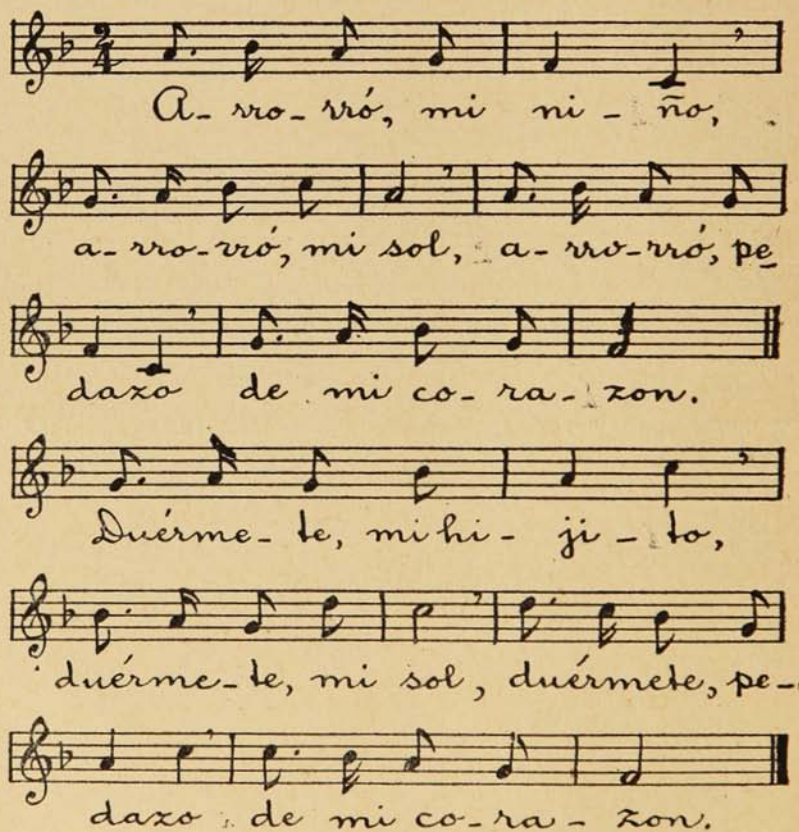 A- rro- rró, mi ni - ño,
a- rro- rró, mi sol, a- rro- rró, pe
dazo de mi co- ra- zon.
Duérme- te, mi hi- ji - to,
duérme- te, mi sol, duérmete, pe-
dazo de mi co- ra - zon.